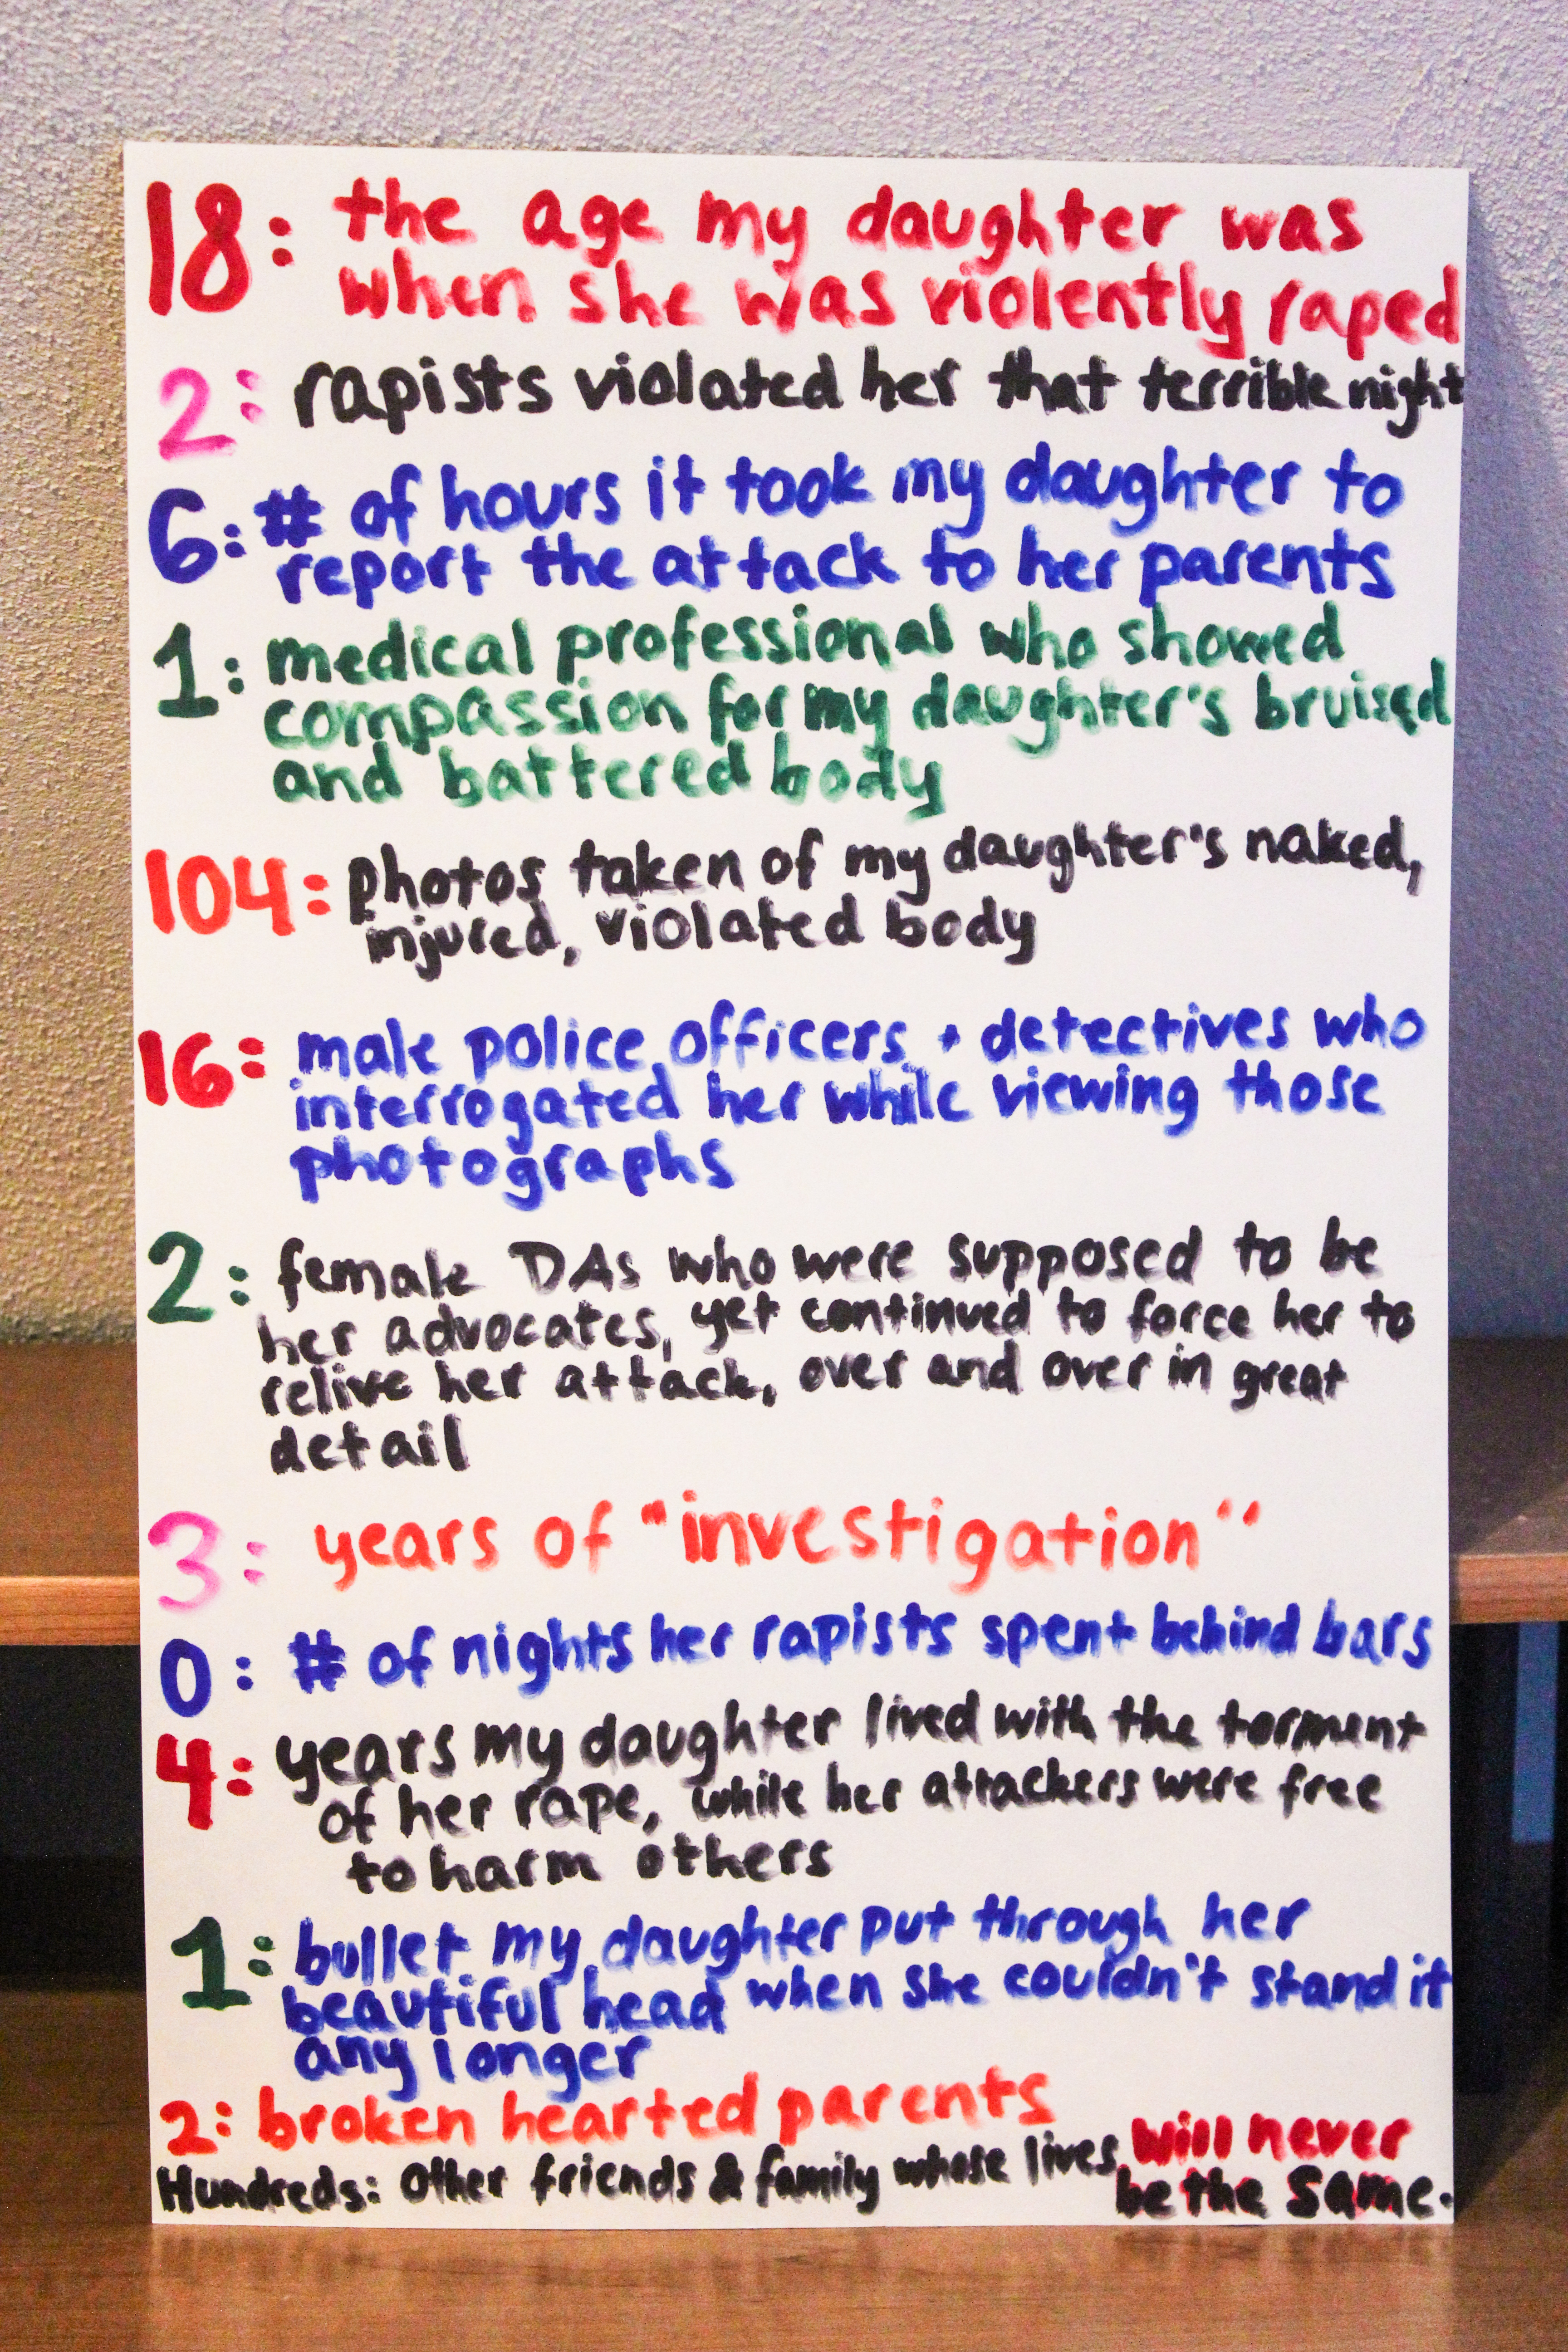 18: the age my daughter was
when she was violently raped
2: rapists violated her that terrible night
6: # of hours it took my daughter to
report the attack to her parents
1: medical professional who showed
compassion for my daughter's bruised
and battered body
104: photos taken of my daughter's naked,
injured, violated body
16: male police officers + detectives who
interrogated her while viewing those
photographs
2: female DAs who were supposed to be
her advocates, yet continued to force her to
relive her attack, over and over in great
detail
3: years of "investigation"
0: # of nights her rapists spent behind bars
4: years my daughter lived with the torment
of her rape, while her attackers were free
to harm others
1: bullet my daughter put through her
beautiful head when she couldn't stand it
any longer
2: broken hearted parents
Hundreds: Other friends & family whose lives will never
be the same.